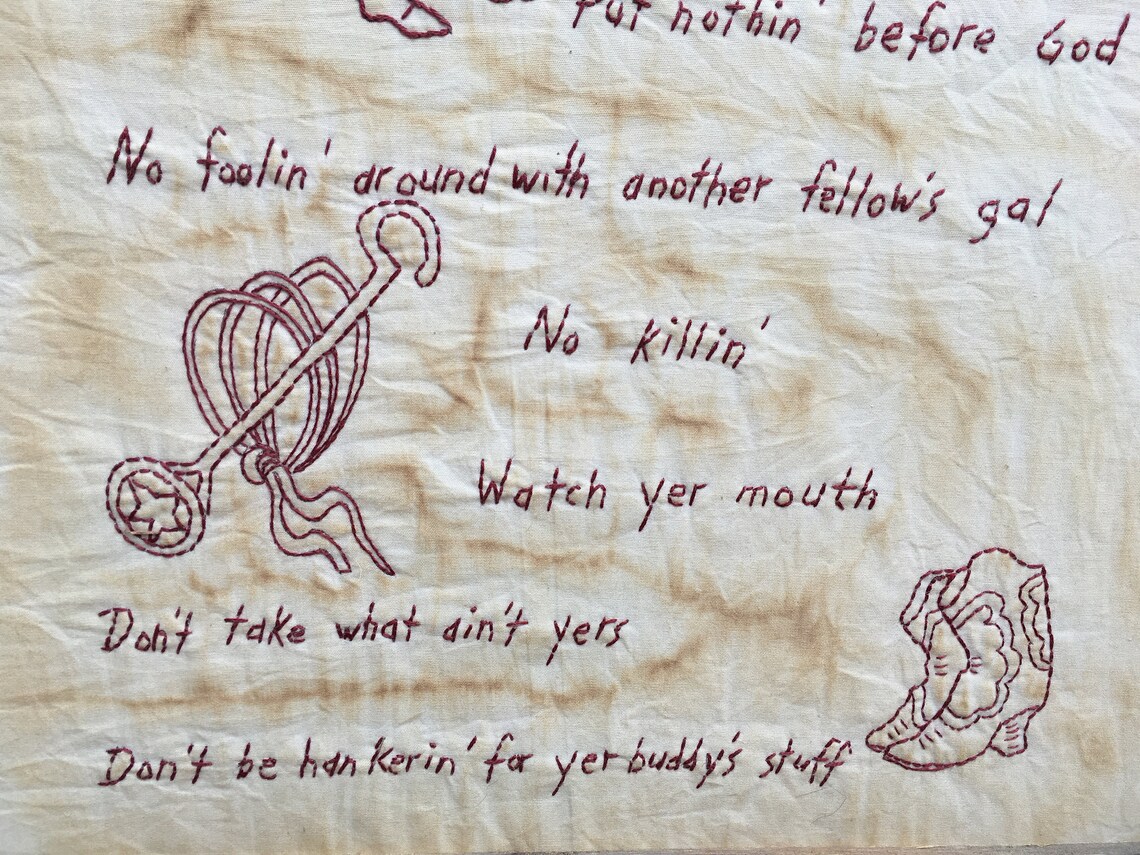 Put nothin' before God
No foolin' around with another fellow's gal
No killin'
Watch yer mouth
Don't take what ain't yers
Don't be hankerin' for yer buddy's stuff